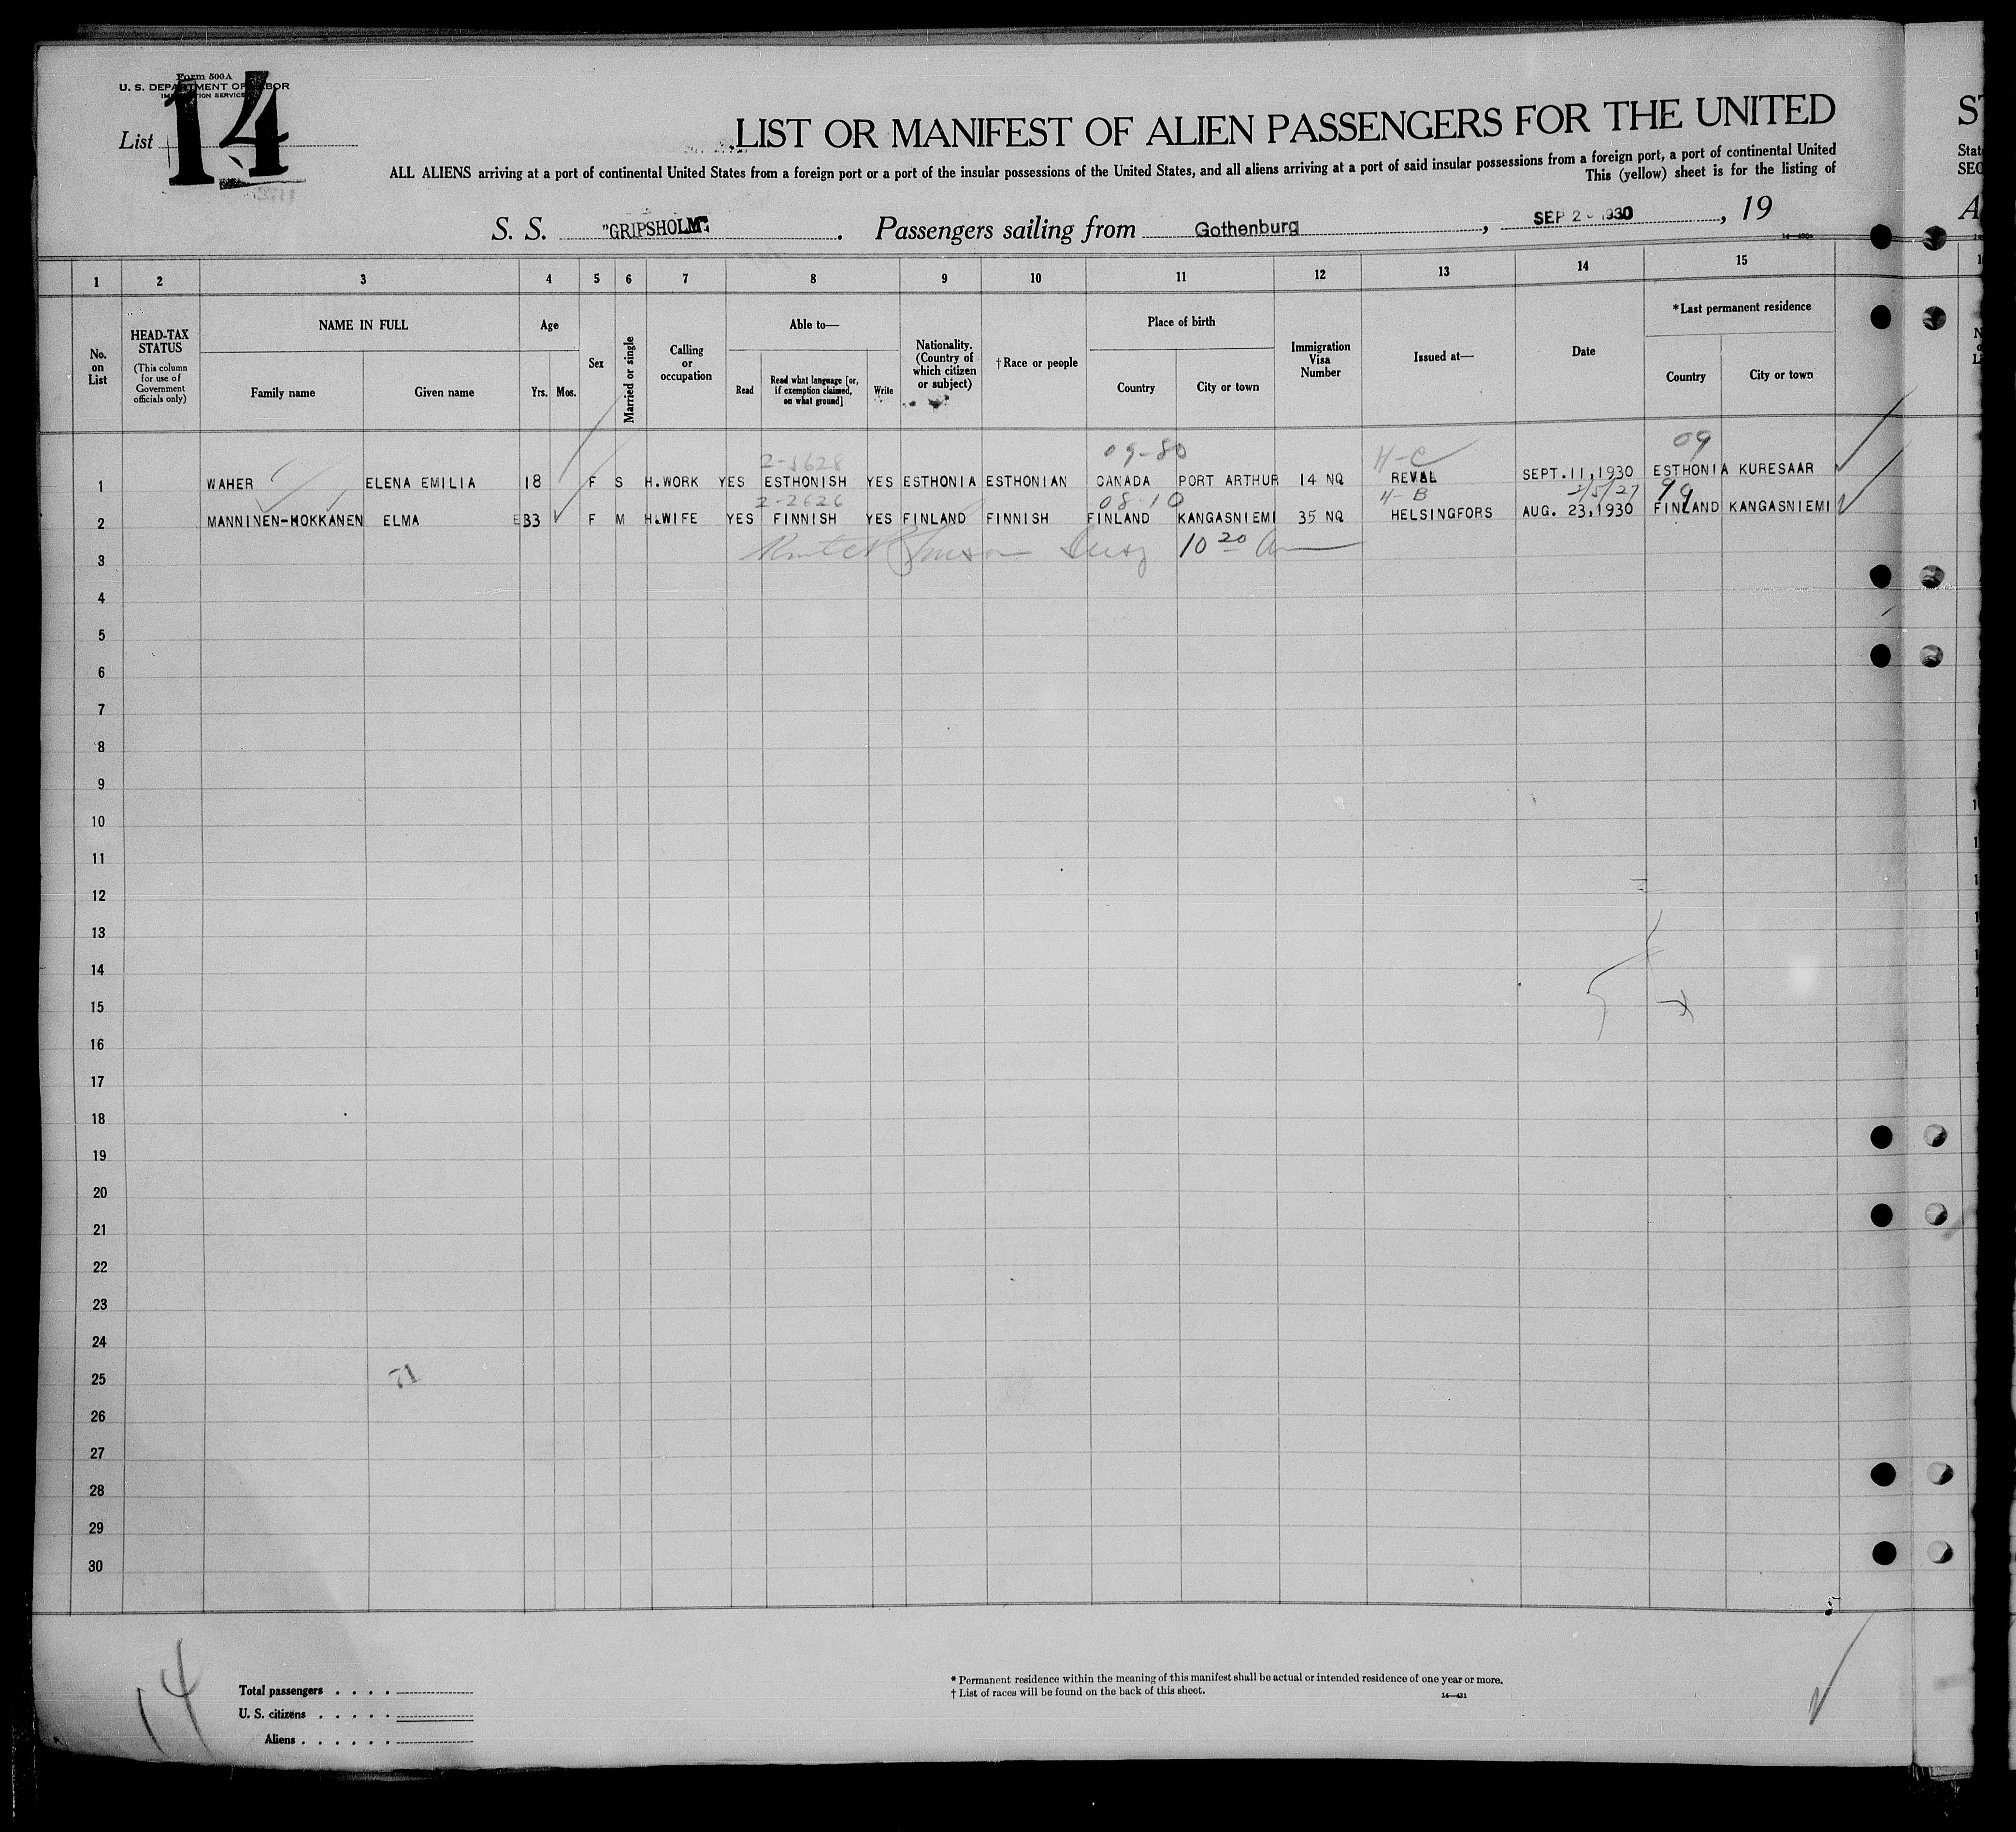 Form 500A
U. S. DEPARTMENT OF LABOR
IMMIGRATION SERVICE
List 14
LIST OR MANIFEST OF ALIEN PASSENGERS FOR THE UNITED
ALL ALIENS arriving at a port of continental United States from a foreign port or a port of the insular possessions of the United States, and all aliens arriving at a port of said insular possessions from a foreign port, a port of continental United
This (yellow) sheet is for the listing of
S. S. "GRIPSHOLM". Passengers sailing from Gothenburg, SEP 2 1930, 19
1 2 3 4 5 6 7 8 9 10 11 12 13 14 15
No. on List
HEAD-TAX STATUS
(This column for use of Government officials only)
NAME IN FULL
Family name Given name
Age
Yrs. Mos.
Sex
Married or single
Calling or occupation
Able to—
Read
Read what language [or, if exemption claimed, on what ground]
Write
Nationality. (Country of which citizen or subject)
† Race or people
Place of birth
Country City or town
Immigration Visa Number
Issued at—
Date
*Last permanent residence
Country City or town
09-80 H-C 09
1 WAHER ELENA EMILIA 18 F S H.WORK YES ESTHONISH YES ESTHONIA ESTHONIAN CANADA PORT ARTHUR 14 NQ REVAL SEPT.11,1930 ESTHONIA KURESAAR
2-2626 08-10 H-B 2/5/27 99
2 MANNINEN-HOKKANEN ELMA 33 F M H.WIFE YES FINNISH YES FINLAND FINNISH FINLAND KANGASNIEMI 35 NQ HELSINGFORS AUG. 23,1930 FINLAND KANGASNIEMI
10 20
3
4
5
6
7
8
9
10
11
12
13
14
15
16
17
18
19
20
21
22
23
24
25
26
27
28
29
30
14
Total passengers
U. S. citizens
Aliens
* Permanent residence within the meaning of this manifest shall be actual or intended residence of one year or more.
† List of races will be found on the back of this sheet.
14—431